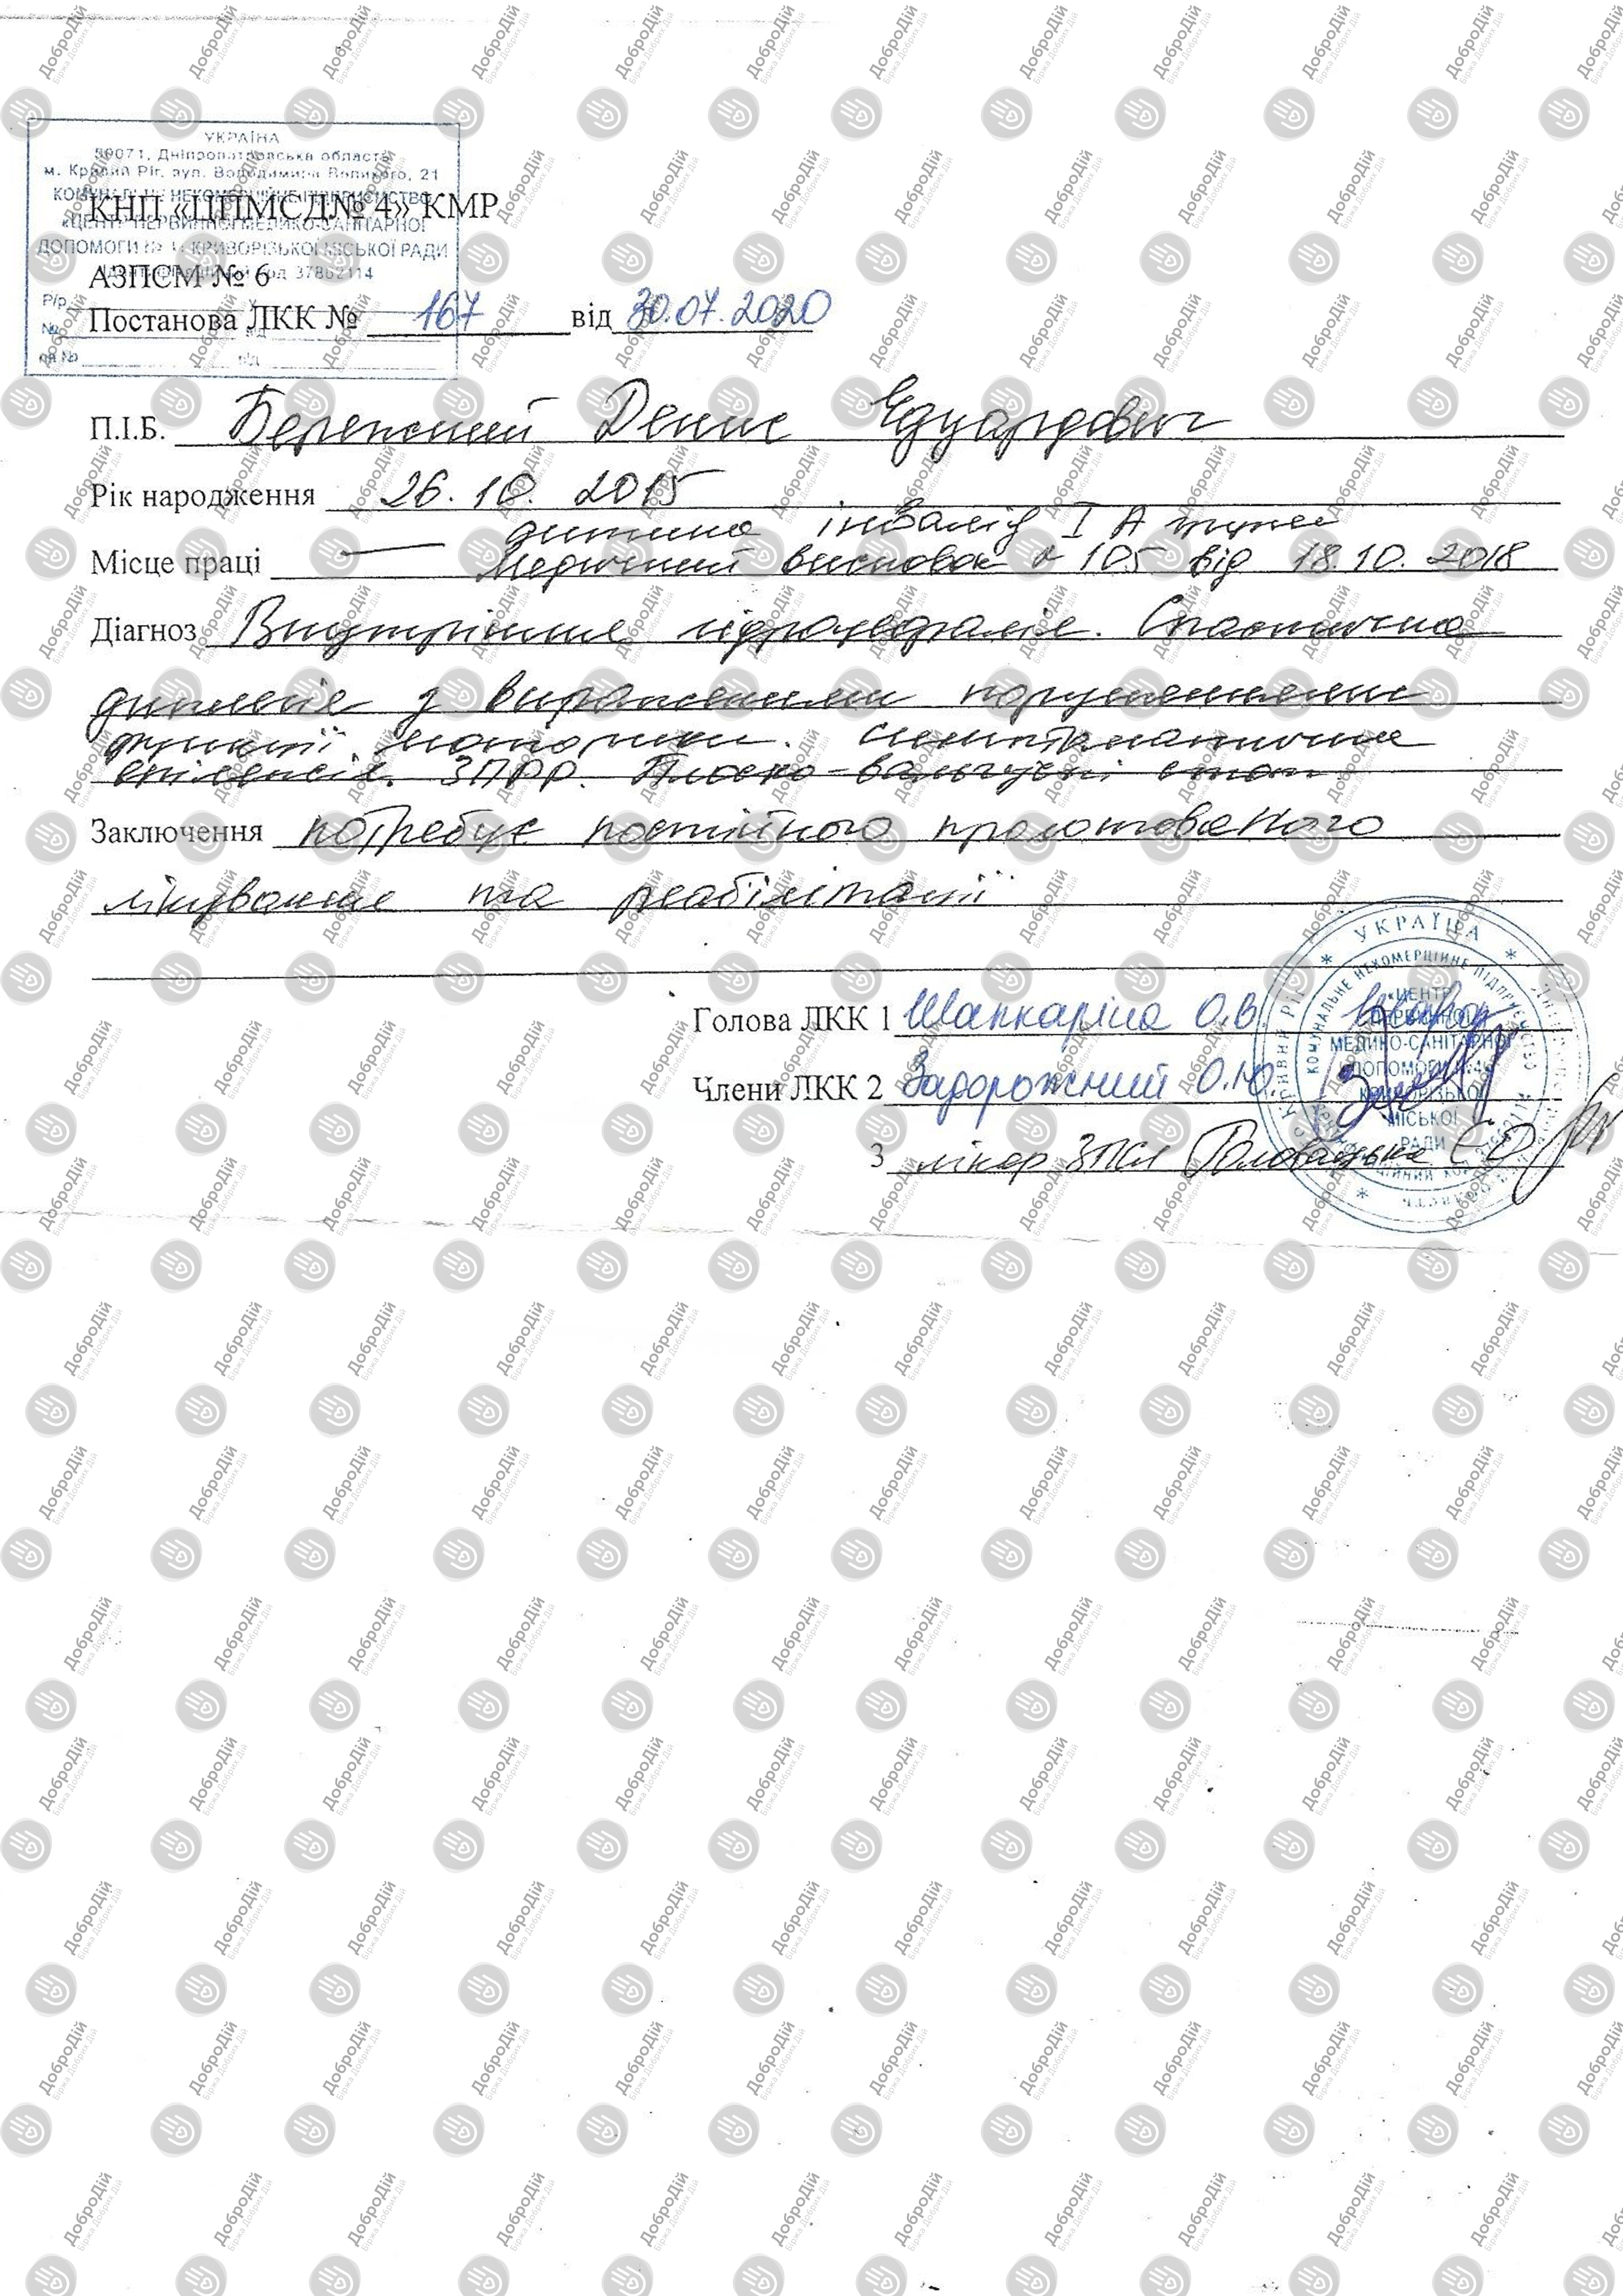 УКРАЇНА
м. Кривий Ріг, вул. Володимира Великого, 21
КОМУНАЛЬНЕ НЕКОМЕРЦІЙНЕ ПІДПРИЄМСТВО
«ЦЕНТР ПЕРВИННОЇ МЕДИКО-САНІТАРНОЇ
ДОПОМОГИ № 4» КРИВОРІЗЬКОЇ МІСЬКОЇ РАДИ
37862114
КНП «ЦПМСД№ 4» КМР
АЗПСМ № 6
Постанова ЛКК № 167 від 30.07.2020
П.І.Б. Денис Едуардович
Рік народження 26.10.2015
дитина інвалід І А групи
Місце праці — Медичний висновок № 105 від 18.10.2018
Діагноз Внутрішня гідроцефалія. Спастична
диплегія з вираженими порушеннями
функції моторики. Симптоматична
епілепсія. ЗПРР. Плоско-вальгусні стоп
Заключення потребує постійного пролонгованого
лікування та реабілітації
Голова ЛКК 1 Шапкаріна О.В.
Члени ЛКК 2 Задорожний О.Ю.
3 лікар ЗПСЛ Головацька Є О
УКРАЇНА
КОМУНАЛЬНЕ НЕКОМЕРЦІЙНЕ ПІДПРИЄМСТВО
«ЦЕНТР
ПЕРВИННОЇ
МЕДИКО-САНІТАРНОЇ
ДОПОМОГИ №4»
КРИВОРІЗЬКОЇ
МІСЬКОЇ
РАДИ
ДоброДій
Біржа Добрих Дій